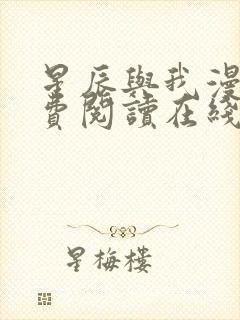 星辰與我漫
費閱讀在綫
星梅樓